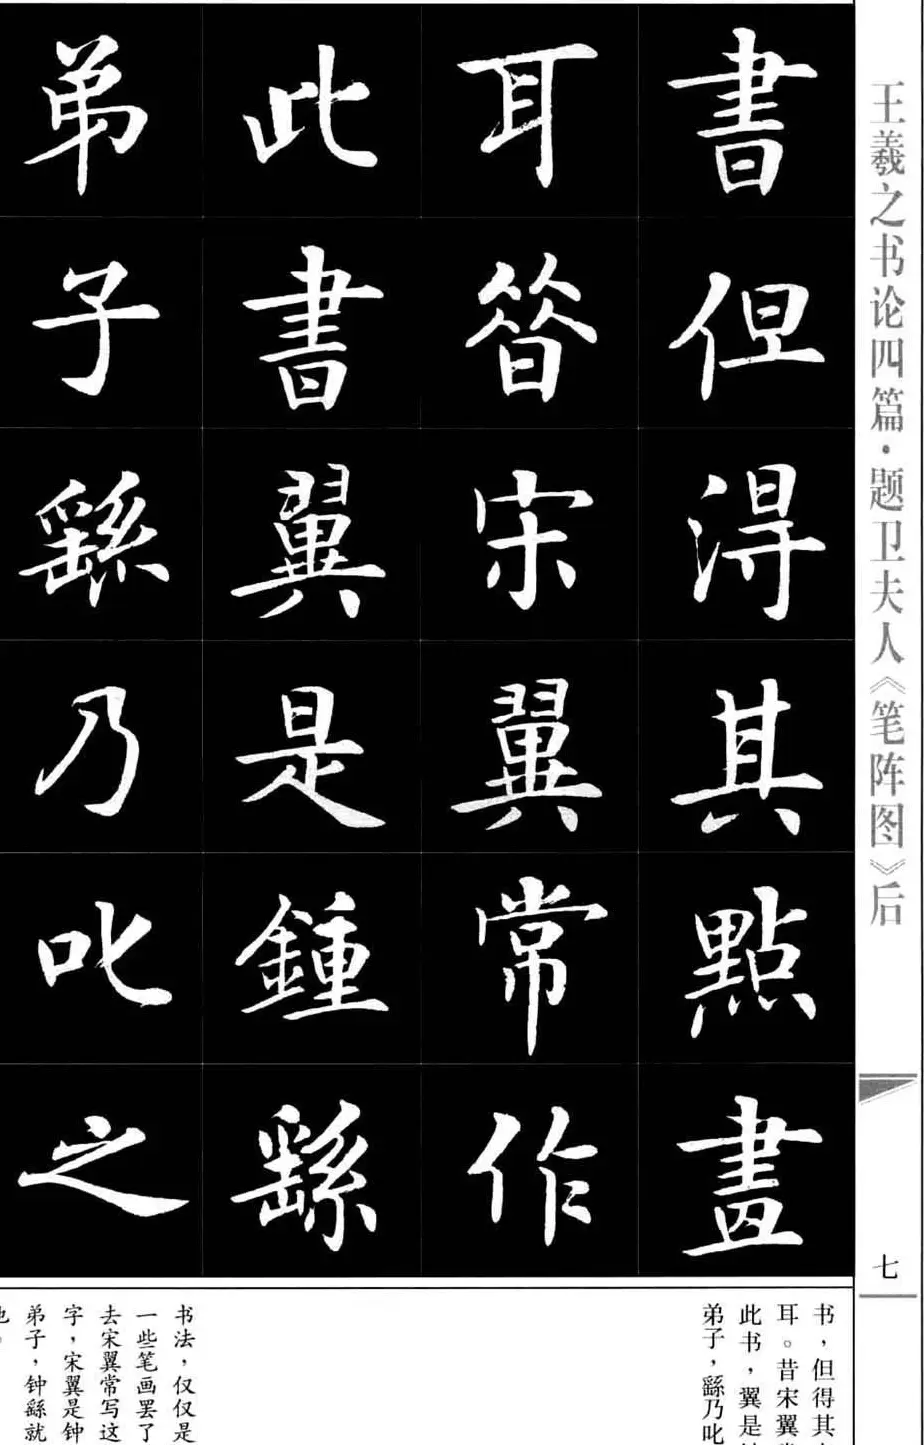 王羲之书论四篇·题卫夫人《笔阵图》后
七
書但淂其點畫
耳昝宋翼常作
此書翼是鍾繇
弟子繇乃叱之
书，但得其
耳。昔宋翼常
此书，翼是
弟子，繇乃叱
书法，仅仅是
一些笔画罢了
去宋翼常写这
字，宋翼是钟
弟子，钟繇就